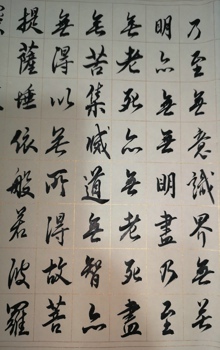 乃至無意識界無無
明亦無無明盡乃至
無老死亦無老死盡
無苦集滅道無智亦
無得以無所得故菩
提薩埵依般若波羅